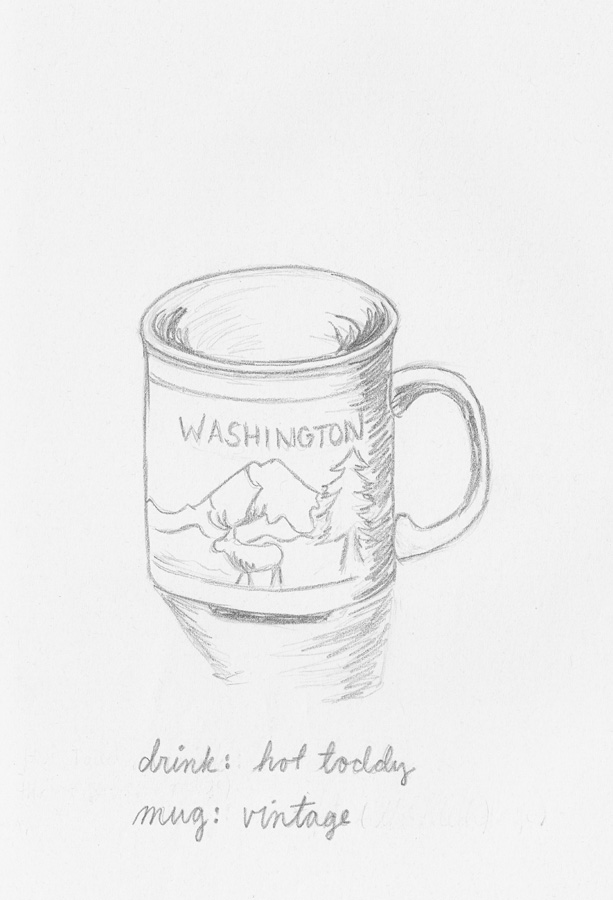 WASHINGTON
drink: hot toddy
mug: vintage